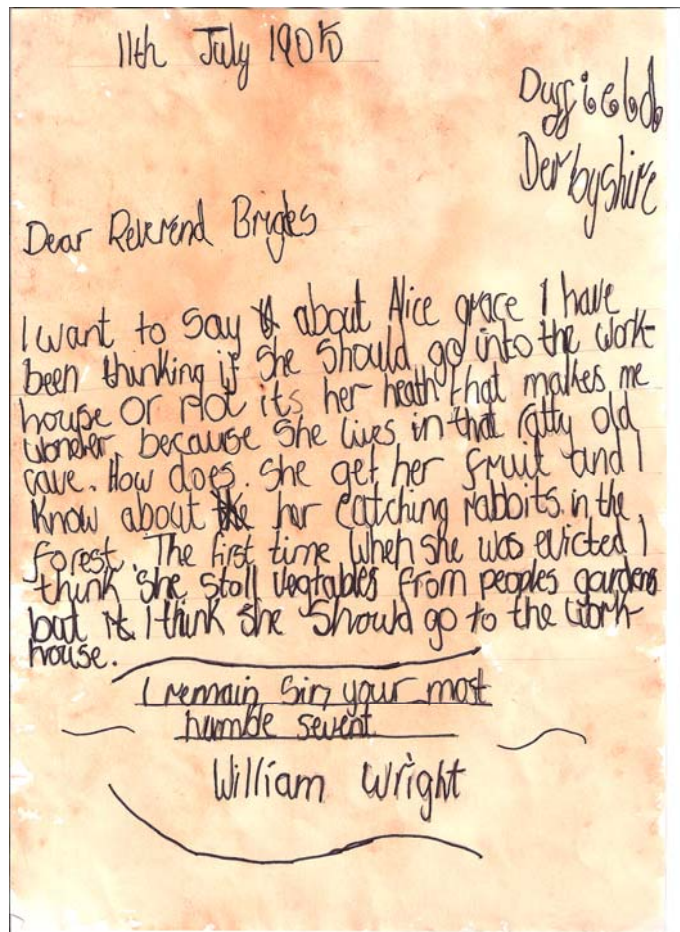 11th July 1905
Duffield
Derbyshire
Dear Reverend Brigles
I want to say about Alice grace I have
been thinking if she should go into the work-
house or not its her heath that makes me
wonder, because she lives in that ratty old
cave. How does she get her fruit and I
know about her catching rabbits in the
forest. The first time when she was evicted I
think she stoll vegtables from peoples gardens
but it I think she should go to the work-
house.
I remain Sir, your most
humble sevent
William Wright